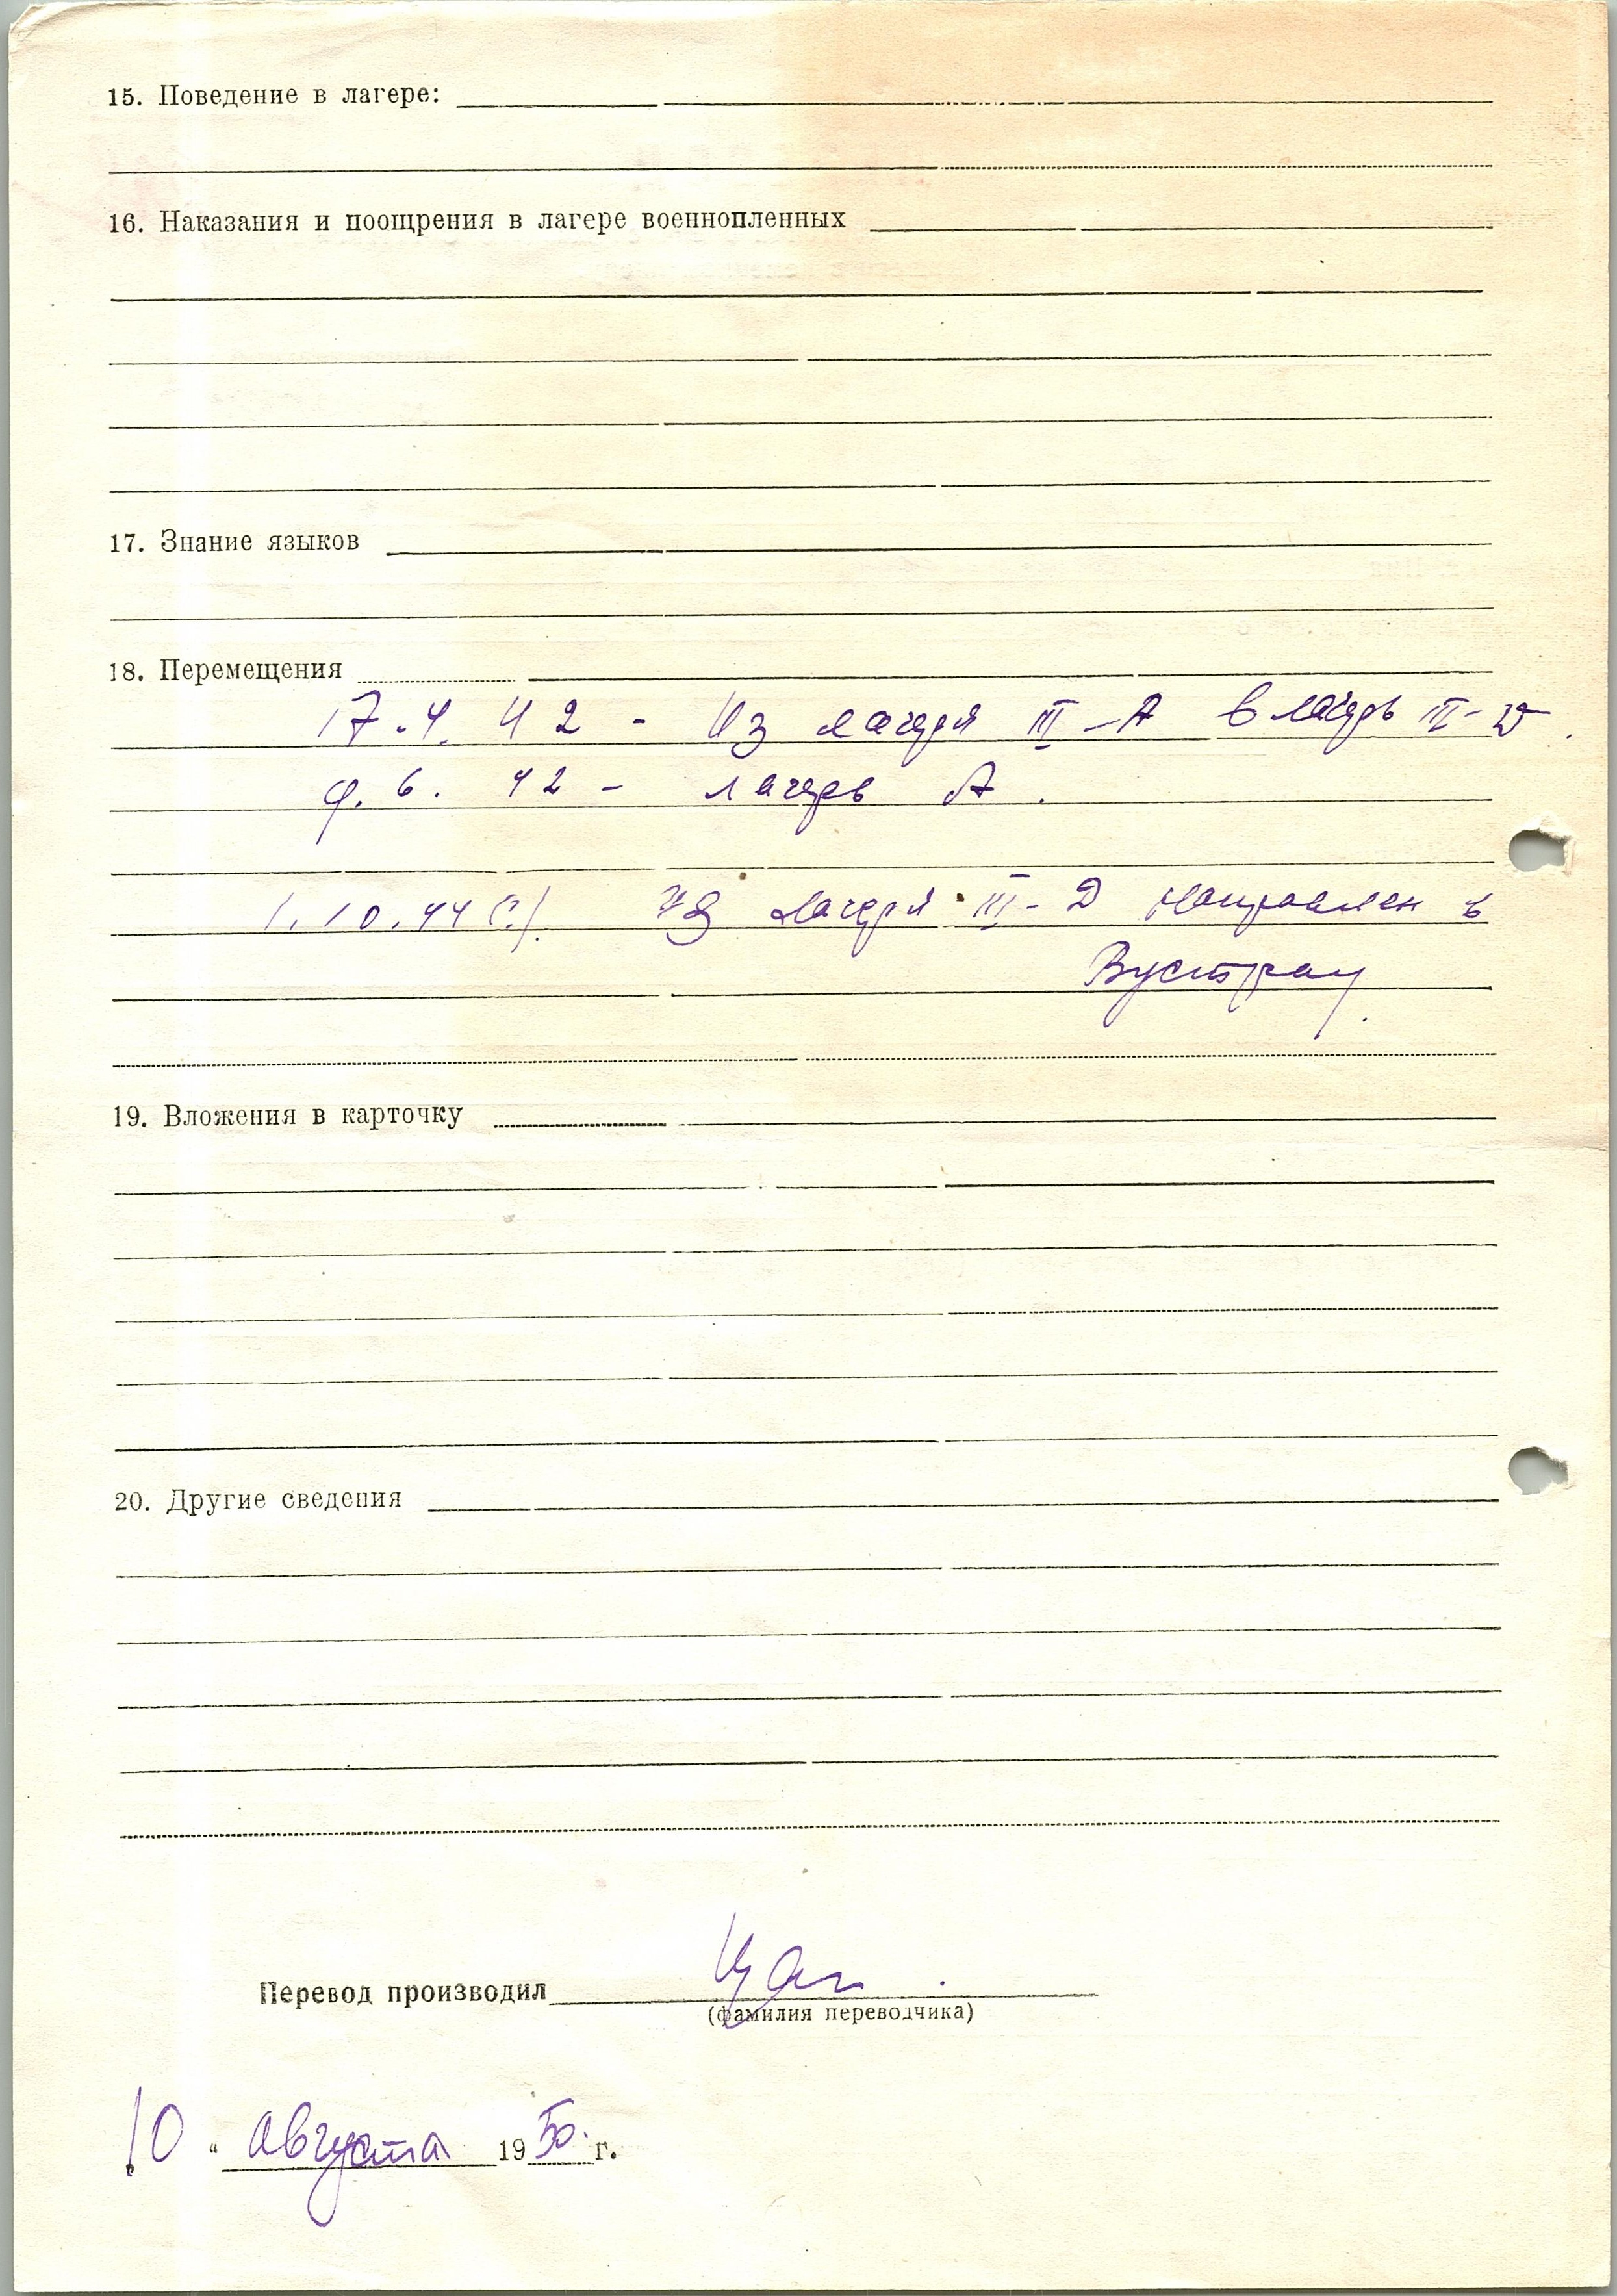 15. Поведение в лагере:
16. Наказания и поощрения в лагере военнопленных
17. Знание языков
18. Перемещения
17.4. 42 - Из лагеря III-А в лагерь III-D.
9. 6. 42 - лагерь А.
1.10.44 г. Из лагеря III-Д направлен в
Вустрау.
19. Вложения в карточку
20. Другие сведения
Перевод производил
(фамилия переводчика)
„10“ августа 1950. г.